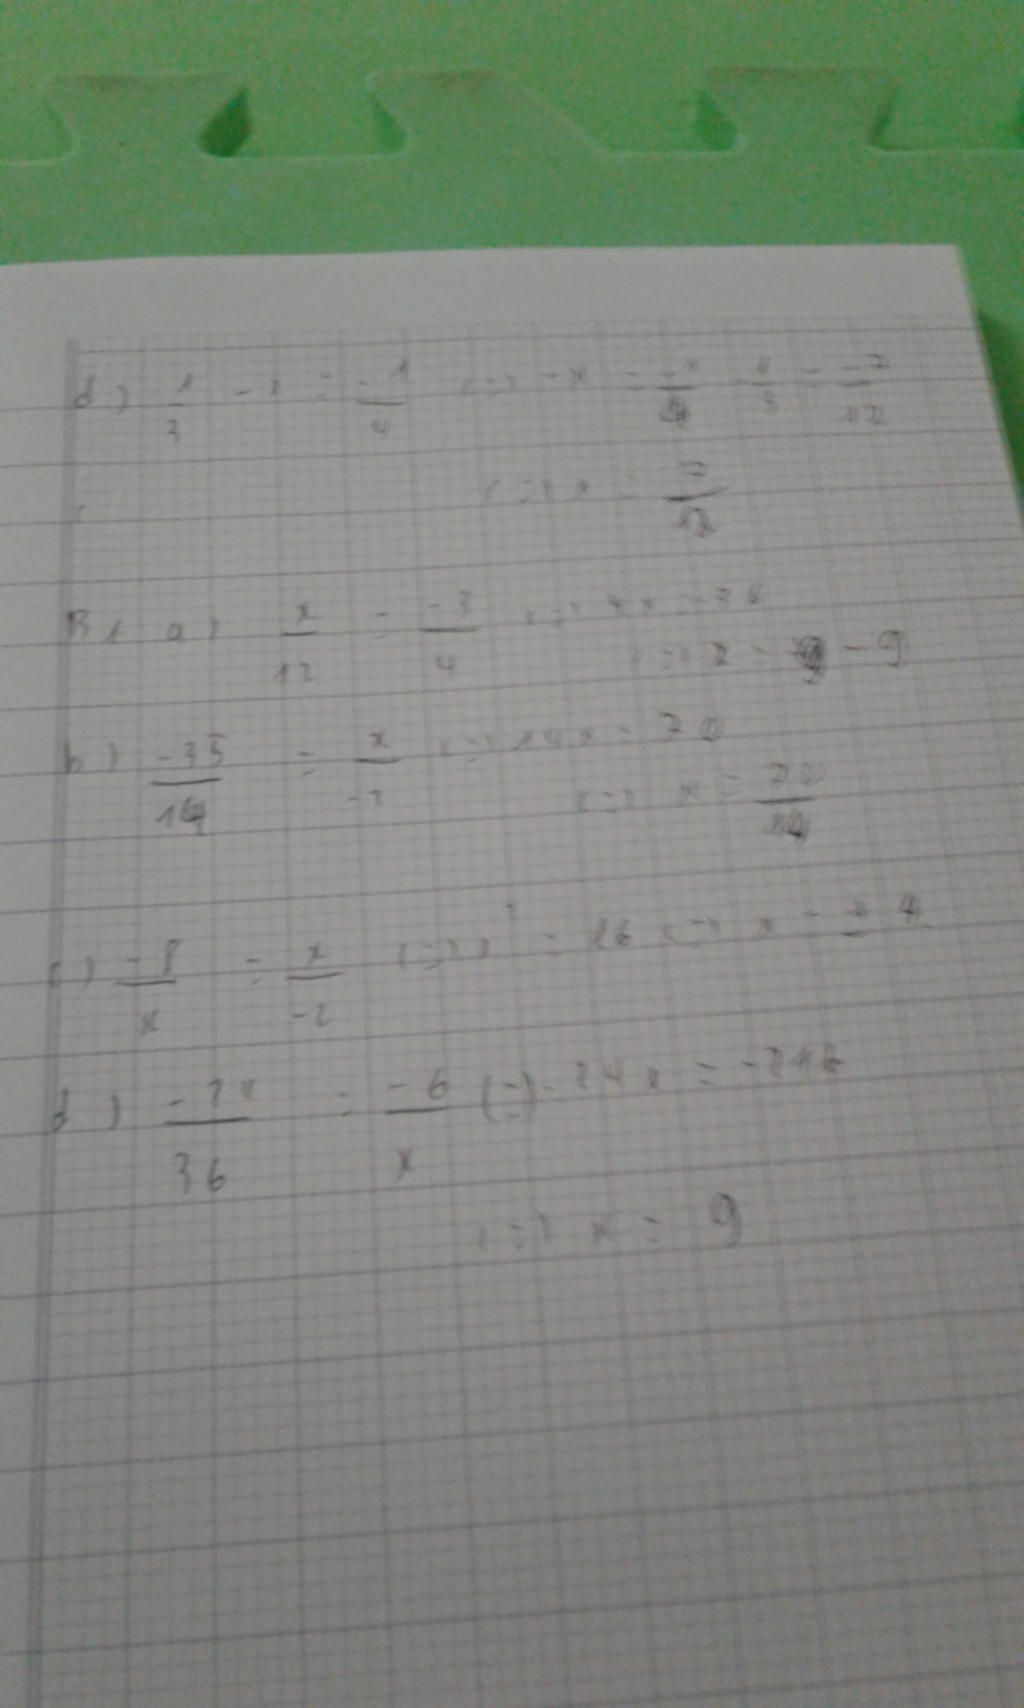 d) 1/3 - x = -1/4 <=> -x = -1/4 - 1/3 = -7/12
<=> x = 7/12
a) x/12 = -3/4 <=> 4x = -36
<=> x = -9
b) -35/14 = x/-2 <=> 14x = 70
<=> x = 70/14
c) -8/x = x/-2 <=> x² = 16 <=> x = ± 4
d) -24/36 = -6/x <=> -24x = -216
<=> x = 9